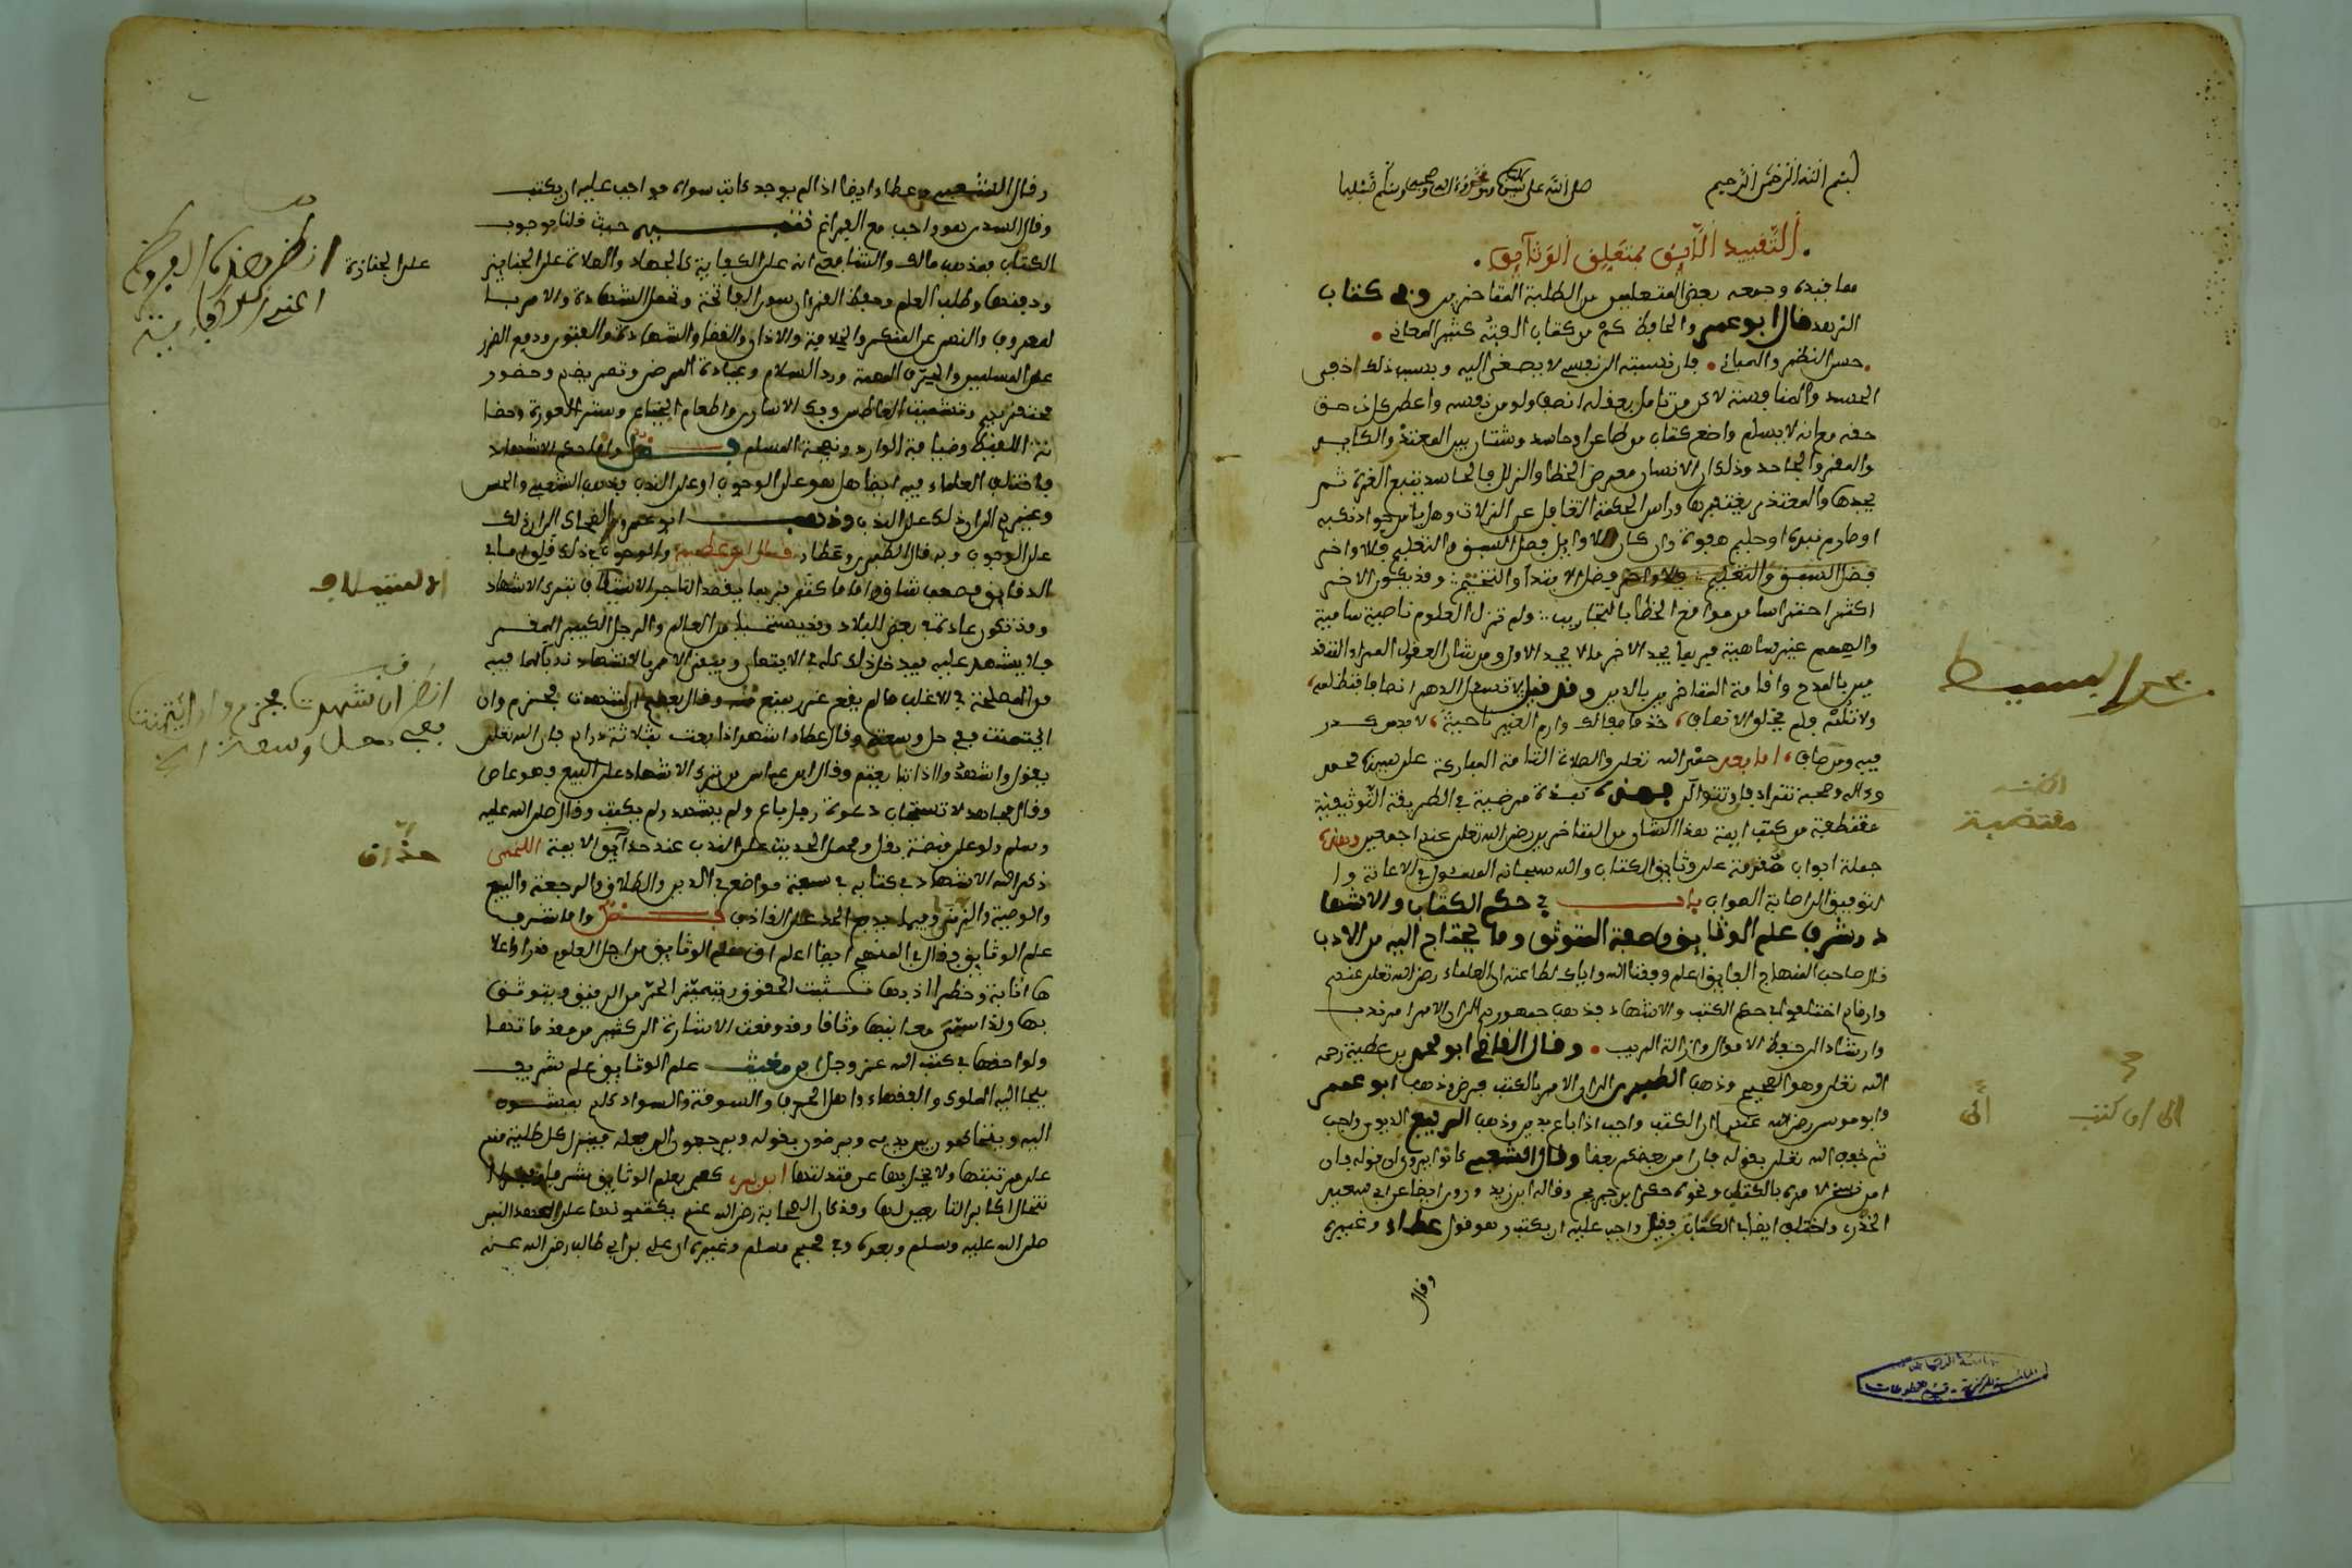 بسم الله الرحمن الرحيم صلى الله على سيدنا ومولانا محمد وءاله وصحبه وسلم تسليما
التقييد اللايق بمتعلق الوثايق
مما قيده وجمعه بعض المتعلمين من الطلبة المتاخرين وفي كتاب
قال ابو عمر والحافظ كم من كتاب الفيته كثير المعاني
حسن النظم والمباني فان نسبته الى نفسي لا يصغى اليه وبسبب ذلك اخفى
الحسد والمنافسة لاكن من تامل بعقله انصف ولو من نفسه واعطى كل ذي حق
حقه مع انه لا يسلم واضع كتاب من طاعن او حاسد وشتان بين المعتذر والكايد
والمقر والجاحد وذلك ان الانسان معرض الخطا والزلل فالحاسد يتبع الغرة ثم
يجدها والمعتذر يغتفرها وراس الحكمة التغافل عن الزلات وهل يامن جواد نكبه
او صارم نبوة او حليم هفوة وان كان للاوايل فضل السبق والتعليم فللاواخر
فضل الابتدا والتتميم وقد يكون الاخر
اكثر احتراسا من مواقع الخطا بالتجاريب ولم تزل العلوم نامية سامية
والهمم غير متناهية فربما يجد الاخر ما لا يجد الاول ومن شان العقول
ولا تلفه ولم يخلو الانصاف خذ ما صفا لك وارم الغير ناحية لابد من كدر
فيه ومن صاف اما بعد حمد الله تعالى والصلاة التامة المباركة على نبينا محمد
وءاله وصحبه فهذه نبذة مرضية في الطريقة التوثيقية
مقتطعة من كتب ايمة هذا الشان من المتاخرين رضي الله تعالى عنهم اجمعين وهذه
جملة ابواب متفرقة على وثايق الكتاب والله سبحانه المسئول في الاعانة وا
لتوفيق الى اصابة الصواب باب في حكم الكتاب والاشها
د وشرف علم الوثايق وصفة الموثق وما يحتاج اليه من الادب
قال صاحب المنهاج الفايق اعلم وفقنا الله واياك لطاعته ان العلماء رضي الله تعالى عنهم
وارضاهم اختلفوا في حكم الكتب والاشهاد فذهب جمهورهم الى ان الامر امر ندب
وارشاد الى حفظ الاموال وازالة الريب وقال القاضي ابو محمد بن عطية رحمه
الله تعالى وهو الصحيح وذهب الطبري الى ان الامر بالكتب فرض وذهب ابو عمر
وابو موسى رضي الله عنهما ان الكتب واجب اذا باع بدين وذهب الربيع الى وجوب
ثم خفف الله تعالى بقوله فان امن بعضكم بعضا وقال الشعبي كانوا يرون ان قوله فان
امن ناسخ لامره بالكتاب ونحوه حكى ابن جريج وقاله ابن زيد وروي ايضا عن ابي سعيد
الخدري واختلف ايضا في الكتاب فقيل واجب عليه ان يكتب وهو قول عطاء وغيره
وقال
البسيط
مقتضبة
الى ان كتب
الى
وقال الشعبي وعطاء ايضا اذا لم يوجد كاتب سواه فواجب عليه ان يكتب
وقال السدي هو واجب مع الفراغ تنبيه حيث قلنا بوجوب
الكتاب فمذهب مالك والشافعي انه على الكفاية كالجهاد والصلاة على الجنايز
ودفنها وطلب العلم وحفظ القرءان سوى الفاتحة وتحمل الشهادة والامر با
لمعروف والنهي عن المنكر والخلافة والاذان والقضا والشهادة والفتوى ودفع الضرر
على المسلمين والحرف المهمة ورد السلام وعيادة المرضى وتمريضهم وحضور
محتضريهم وتشميت العاطس وفك الاسارى واطعام الجياع وستر العورة وحضا
نة اللقيط وضيافة الوارد ونصيحة المسلم فصل واما حكم الاشهاد
فاختلف العلماء فيه ايضا هل هو على الوجوب او على الندب فذهب الشعبي والحسن
وغيرهم الى ان ذلك على الندب وذهب ابو عمر والضحاك الى ان ذلك
على الوجوب وبه قال الطبري وعطاء قال ابن عطية والوجوب في ذلك قلق اما في
الدقايق فصعب شاق واما ما كثر فربما يقصد التاجر الاستيلاف بترك الاشهاد
وقد تكون عادة في بعض البلاد وقد يستحيى من العالم والرجل الكبير الموقر
فلا يشهد عليه فيدخل ذلك كله في الايتمان ويبقى الامر بالاشهاد ندبا لما فيه
من المصلحة في الاغلب ما لم يقع عذر يمنع منه وقال بعضهم ان اشهدت فحزم وان
ايتمنت ففي حل وسعة وقال عطاء اشهد اذا بعت بثلاثة دراهم فان الله تعالى
يقول واشهدوا اذا تبايعتم وقال ابن عباس من ترك الاشهاد على البيع فهو عاص
وقال مجاهد لا تستجاب دعوة رجل باع ولم يشهد ولم يكتب وقال صلى الله عليه
وسلم ولو على قبضة بقل ومحمل الحديث على الندب عند حذاق الايمة اللخمي
ذكر الله الاشهاد في كتابه في سبعة مواضع في الدين والطلاق والرجعة والبيع
والوصية والزنى وفيما يدفع الحد على القاذف فصل واما شرف
علم الوثايق فقال في المنهج ايضا اعلم ان علم الوثايق من اجل العلوم قدرا واعلا
ها انابة وخطرا اذ بها تثبت الحقوق ويتميز الحر من الرقيق ويتوثق
بها ولذا سمى معانيها وثاقا وقد وقعت الاشارة الى كثير من
ولواحقها في كتاب الله عز وجل ابن مغيث علم الوثايق علم شريف
يلجا اليه الملوك والفقهاء واهل الحرف والسوقة والسواد كلهم يمشون
اليه ويتحاكمون بين يديه ويرضون بقوله ويرجعون الى فعله فينزل كل طبقة منهم
على مرتبتها ولا يخل بها عن منزلتها كفى بعلم الوثايق شرفا
انتحال اكابر التابعين لها وقد كان الصحابة رضي الله عنهم يكتبونها على عهد النبي
صلى الله عليه وسلم وبعده وفي صحيح مسلم وغيره ان علي بن ابي طالب رضي الله عنه
على الجنازة
انظر هذه الفروض
الاستيلاف
انظر ان شهدت فحزم وان ايتمنت
ففي حل وسعة
حذاق